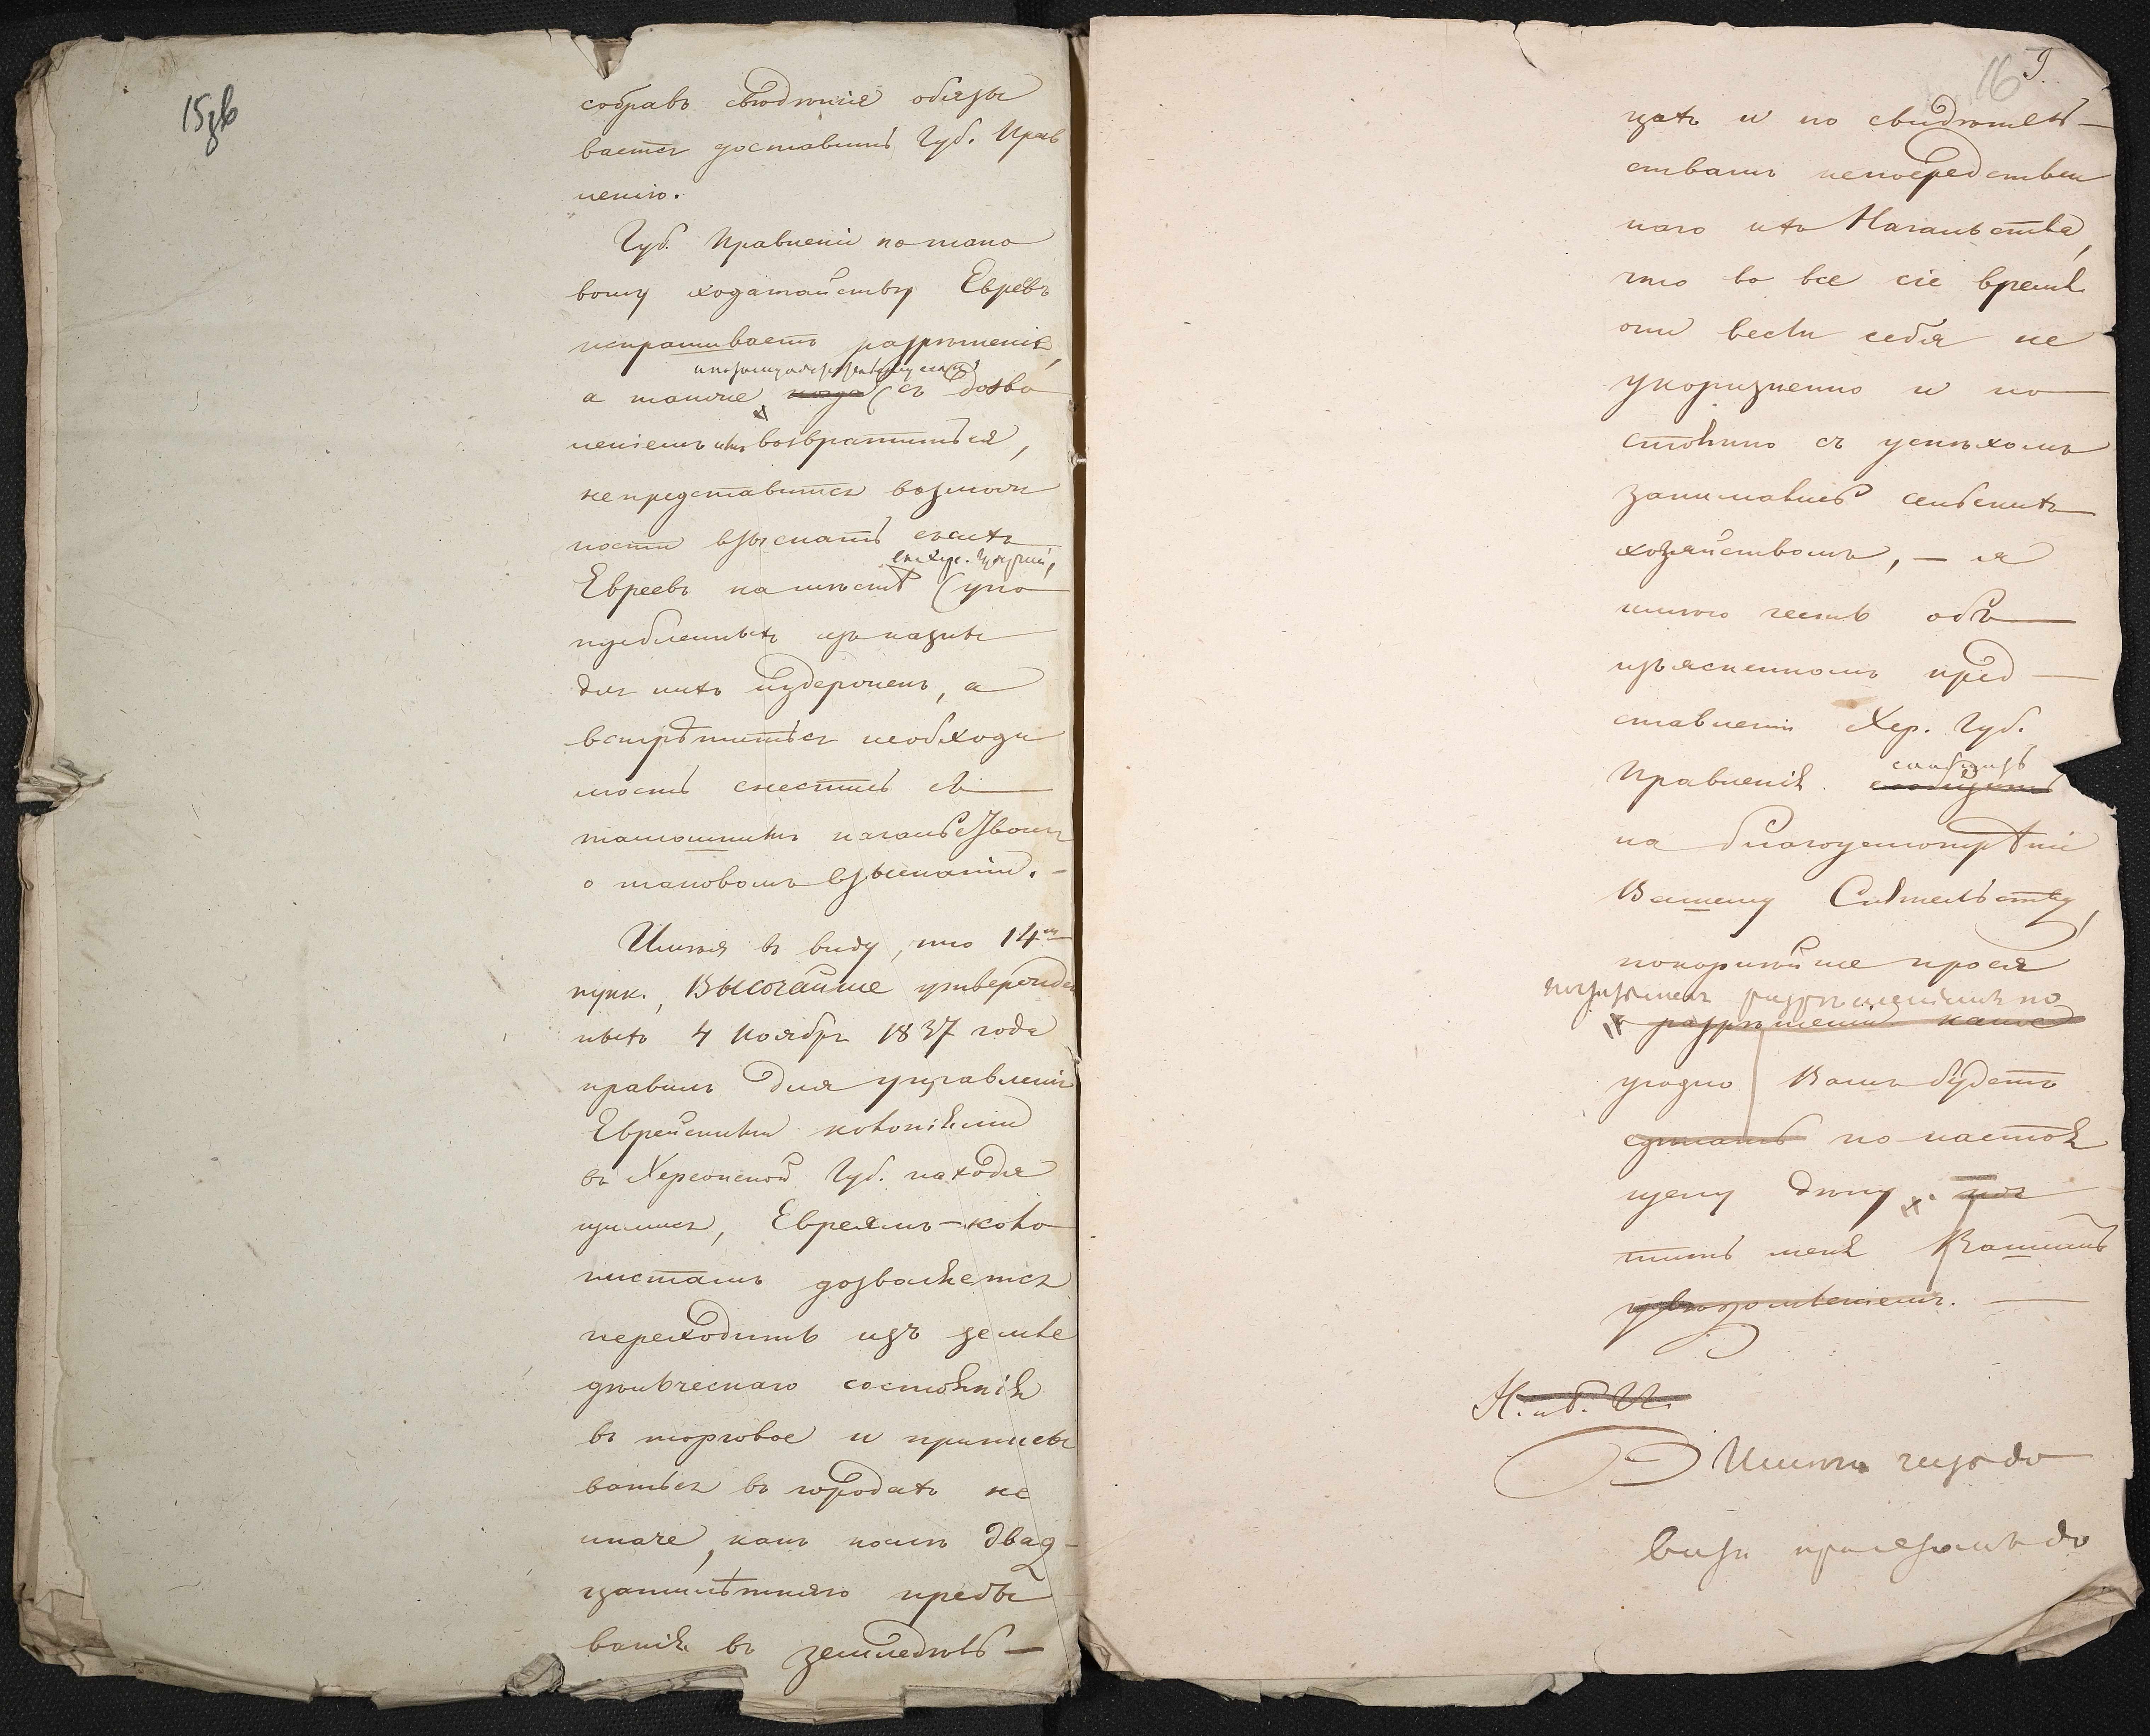 15 об
собравъ свѣдѣнія обязы
вается доставить Губ. Прав
ленію.
Губ. Правленіе по тако
вому ходатайству Евреевъ
испрашиваетъ разрѣшенія,
а также когда (съ дозво
леніемъ имъ возвратиться,
не представится возмож
ности взыскать съ сихъ
въ Хер. Губерніи,
Евреевъ на мѣстѣ (упо
требленныхъ изъ казны
для нихъ издержекъ, а
встрѣтится необходи
мость снестись съ
тамошнимъ начальствомъ
о таковомъ взысканіи. –
Имѣя въ виду, что 14й
пунк., Высочайше утвержден
ныхъ 4 Ноября 1837 года
правилъ для управленія
Еврейскими колоніями
въ Херсонской Губ. находя
щимися, Евреямъ-коло
нистамъ дозволяется
переходить изъ земле
дѣльческаго состоянія
въ торговое и приписы
ваться въ городахъ не
иначе, какъ послѣ двад-
цатилѣтняго пребы
ванія въ земледѣль—
16
9.
цахъ и по свидѣтель—
ствамъ непосредствен
наго ихъ Начальства,
что во все сіе время
они вели себя не
укоризненно и по
стоянно съ успѣхомъ
занимались сельскимъ
хозяйствомъ, – я
имѣю честь объ
изъясненномъ пред—
ставленіи Хер. Губ.
Правленія сообщить
на благоусмотрѣніе
Вашему Сіятельству,
покорнѣйше прося
разрѣшеніемъ по
разрѣшеніи какое
угодно Вамъ будетъ
сдѣлать по настоя
щему дѣлу, поч
тить меня Вашимъ
увѣдомленіемъ. —
Н. об. И.